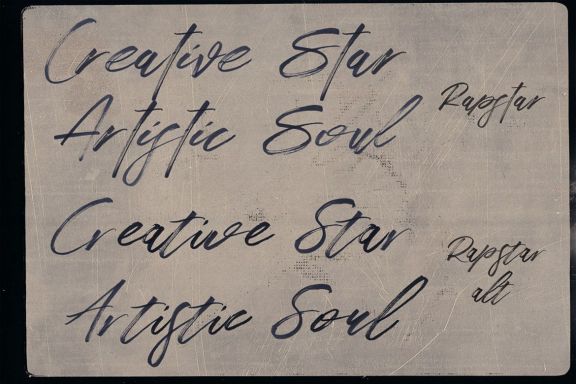 Creative Star
Artistic Soul
Rapstar
Creative Star
Artistic Soul
Rapstar
alt